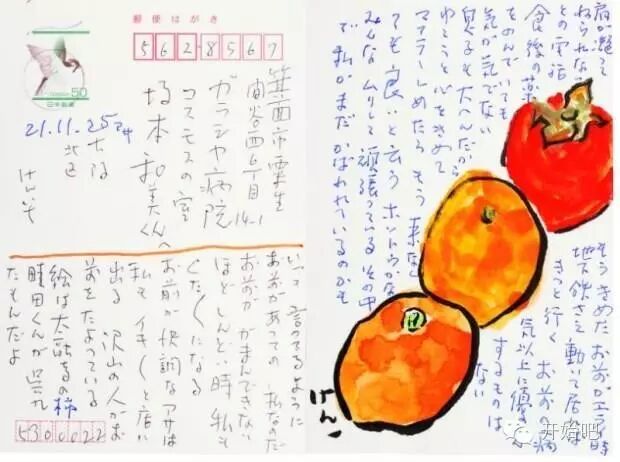 郵便はがき
50
日本郵便
562-8567
箕面市粟生
間谷西6丁目
14-1
ガラシャ病院
コスモスの室
坂本和美くんへ
21.11.25
大阪
北区
いつも言ってるように
お前があっての私なのだ
お前ががまんできない
ほどしんどい時私も
くたくたになる
お前が快調なアサは
私もイキイキと店に
出る 沢山の人がお
前をたよっている
絵は の柿
時田くんが呉れ
たもんだよ
5300022
肩が凝って
ねられない
との電話
食後の薬
をのんでいても
気が気でない
子も大へんだから
ゆこうと心をきめて
マフラーしめたら もう来なく
ても良いと云う ホントウかな
みんなムリして頑張っている その中
で私がまだかばわれているのかも
もうきめた お前がエライ時
地下鉄さえ動いて居れば
きっと行く お前の病
気以上に優先
するものは
ない
けん
开始吧